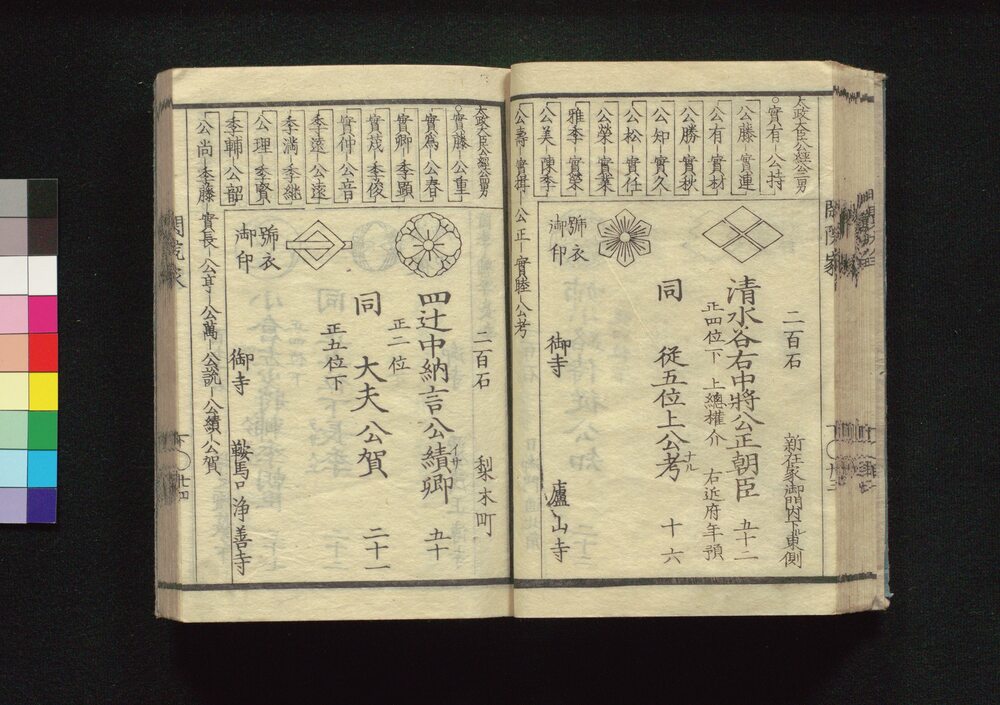 太政大臣公経公二男
實有―公持
公藤―實連
公有―實材
公勝―實秋
公知―實久
公松―實任
公榮―實業
雅季―實榮
公美―陳季
公壽―實揖―公正―實睦―公考
二百石
新在家御門内下ル東側
清水谷右中將公正朝臣 五十二
正四位下 上總權介 右近府年預
同 從五位上公考 十六
ナル
號衣
御印
御寺 廬山寺
閑院家
太政大臣公經公四男
實藤―公重
實為―公春
實卿―季顯
實茂―季俊
實仲―公音
季遠―公遠
季満―季継
公理―季賢
季輔―公韶
公尚―季藤―實長―公亨―公萬―公説―公績―公賀
二百石 梨木町
四辻中納言公績卿 五十
イサ
正二位
同 大夫公賀 二十一
正五位下
號衣
御印
御寺 鞍馬口浄善寺
七四